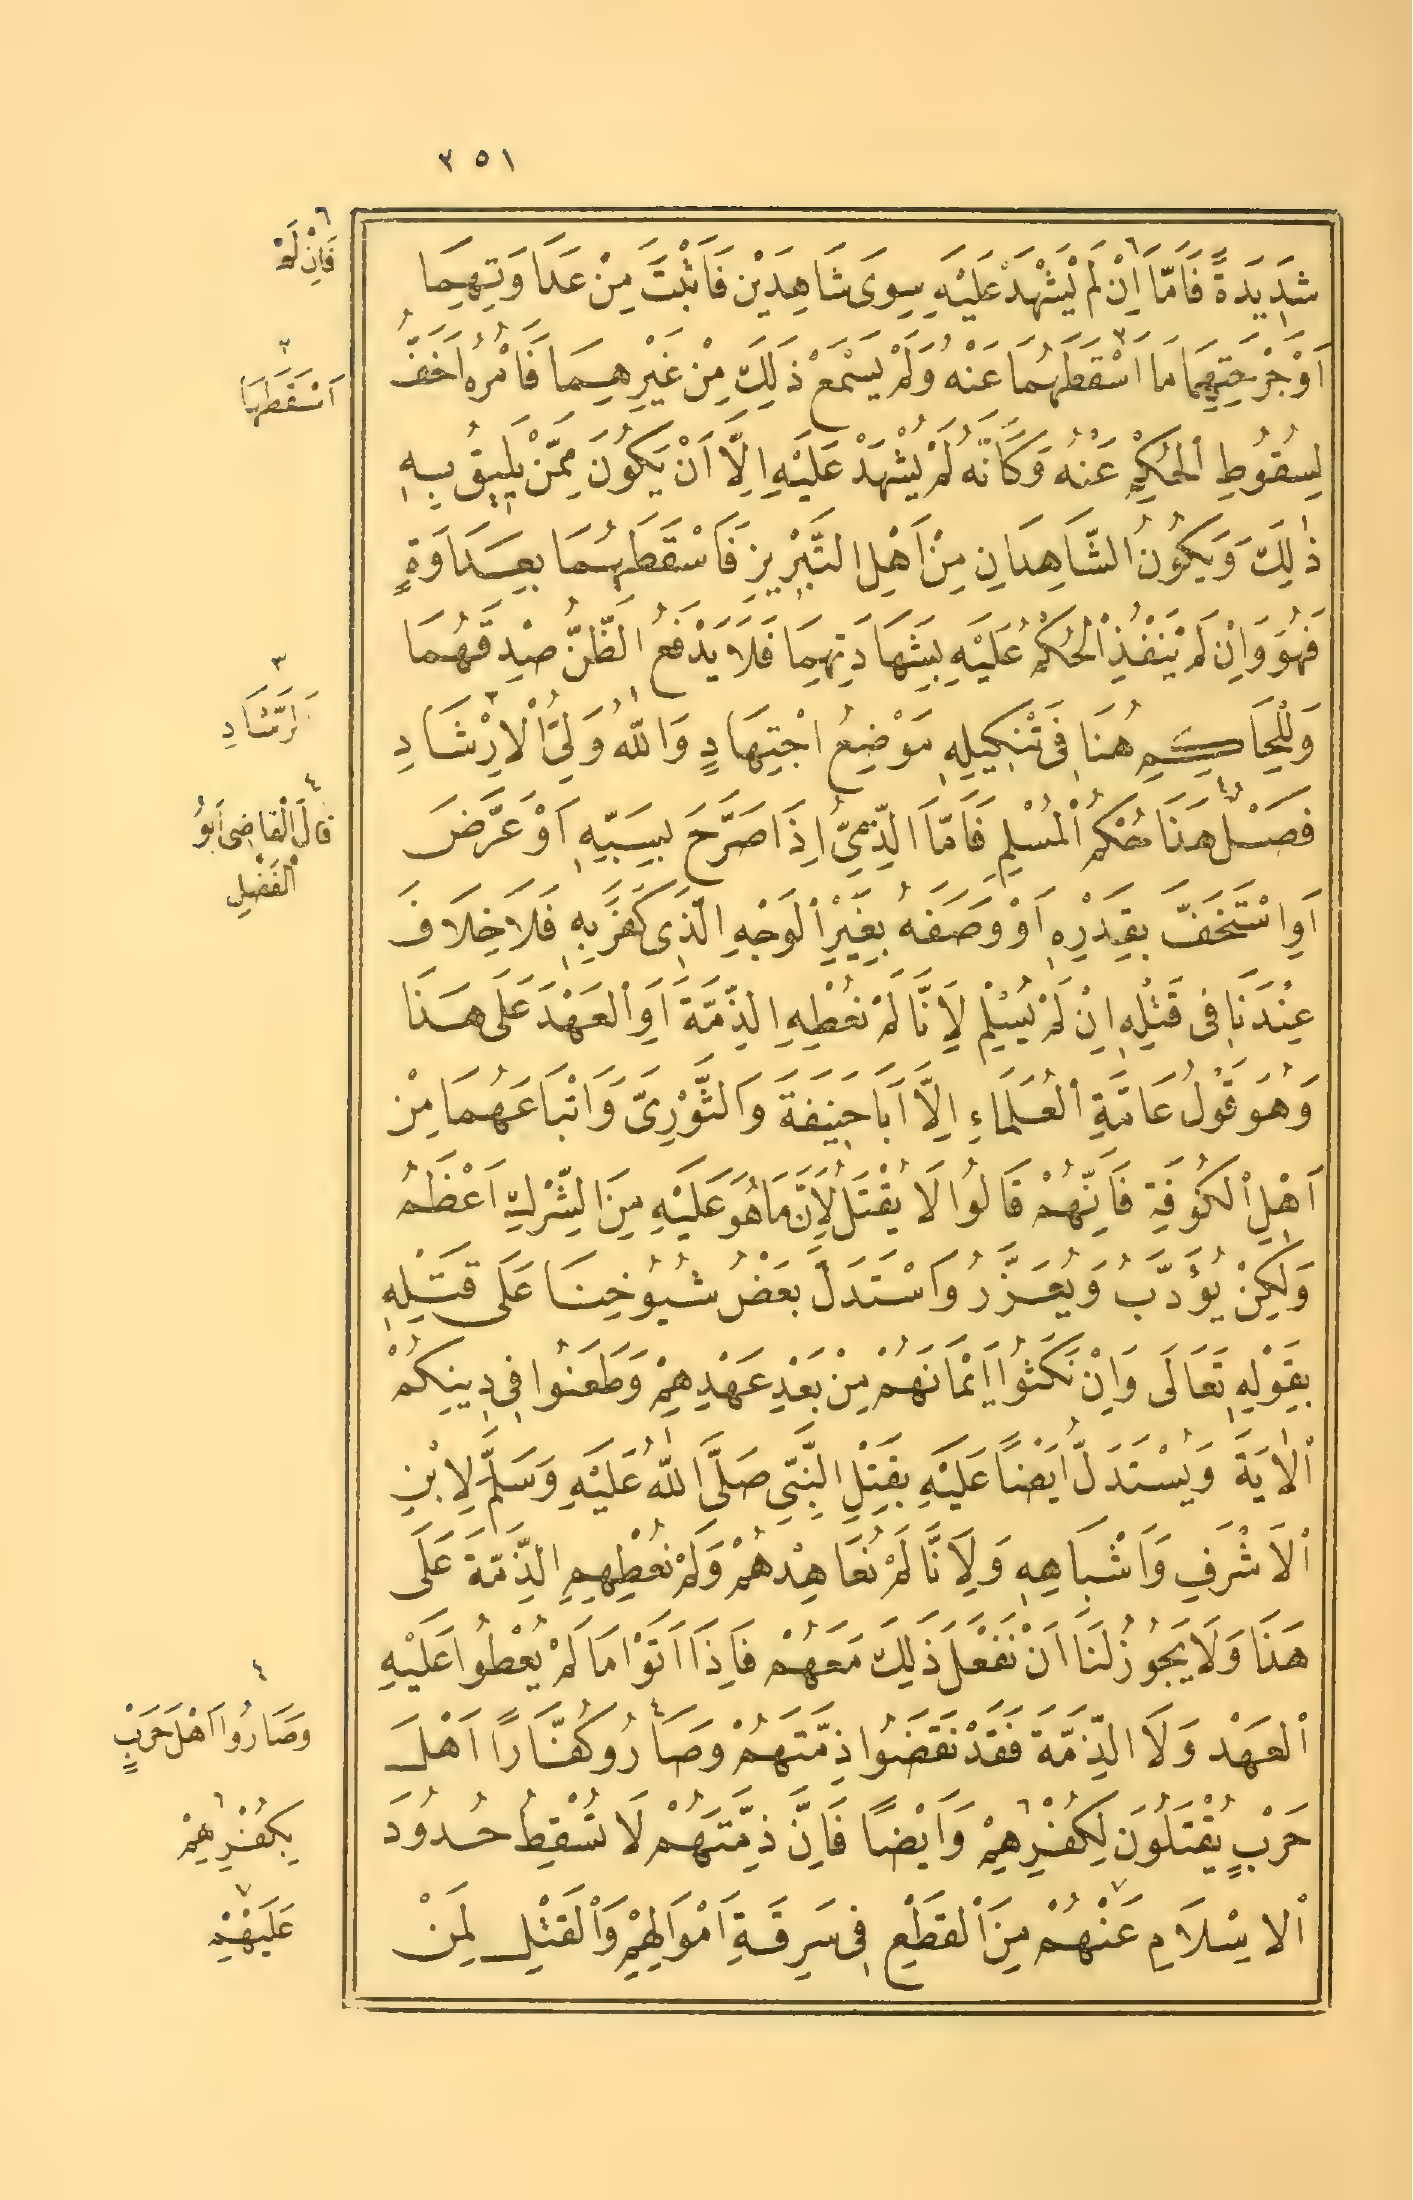 ٣٥١
شَدِيدَةً فَاَمَّا اِنْ لَمْ يُشْهَدْ عَلَيْهِ سِوَى شَاهِدَيْنِ فَاَثْبَتَ مِنْ عَدَاوَتِهِمَا
اَوْ جَرْحَتِهِمَا مَا اَسْقَطَهُمَا عَنْهُ وَلَمْ يَسْمَعْ ذَلِكَ مِنْ غَيْرِهِمَا فَاَمْرُهُ اَخَفُّ
لِسُقُوطِ الْحُكْمِ عَنْهُ وَكَاَنَّهُ لَمْ يُشْهَدْ عَلَيْهِ اِلَّا اَنْ يَكُونَ مِمَّنْ يَلِيقُ بِهِ
ذٰلِكَ وَيَكُونُ الشَّاهِدَانِ مِنْ اَهْلِ التَّبْرِيزِ فَاَسْقَطَهُمَا بِعَدَاوَةٍ
فَهُوَ وَاِنْ لَمْ يَنْفُذِ الْحُكْمُ عَلَيْهِ بِشَهَادَتِهِمَا فَلَا يَدْفَعُ الظَّنُّ صِدْقَهُمَا
وَلِلْحَاكِمِ هُنَا فِى تَنْكِيلِهِ مَوْضِعُ اجْتِهَادٍ وَاللّٰهُ وَلِيُّ الْاِرْشَادِ
فَصْلٌ هَذَا حُكْمُ الْمُسْلِمِ فَاَمَّا الذِّمِّىُّ اِذَا صَرَّحَ بِسَبِّهِ اَوْ عَرَّضَ
اَوِ اسْتَخَفَّ بِقَدْرِهِ اَوْ وَصَفَهُ بِغَيْرِ الْوَجْهِ الَّذِى كَفَرَ بِهِ فَلَا خِلَافَ
عِنْدَنَا فِى قَتْلِهِ اِنْ لَمْ يُسْلِمْ لِاَنَّا لَمْ نُعْطِهِ الذِّمَّةَ اَوِ الْعَهْدَ عَلَى هَذَا
وَهُوَ قَوْلُ عَامَّةِ الْعُلَمَاءِ اِلَّا اَبَا حَنِيفَةَ وَالثَّوْرِىَّ وَاَتْبَاعَهُمَا مِنْ
اَهْلِ الْكُوفَةِ فَاِنَّهُمْ قَالُوا لَا يُقْتَلُ لِاَنَّ مَا هُوَ عَلَيْهِ مِنَ الشِّرْكِ اَعْظَمُ
وَلٰكِنْ يُؤَدَّبُ وَيُعَزَّرُ وَاسْتَدَلَّ بَعْضُ شُيُوخِنَا عَلَى قَتْلِهِ
بِقَوْلِهِ تَعَالَى وَاِنْ نَكَثُوا اَيْمَانَهُمْ مِنْ بَعْدِ عَهْدِهِمْ وَطَعَنُوا فِى دِينِكُمْ
الْاٰيَةَ وَيُسْتَدَلُّ اَيْضًا عَلَيْهِ بِقَتْلِ النَّبِىِّ صَلَّى اللّٰهُ عَلَيْهِ وَسَلَّمَ لِابْنِ
الْاَشْرَفِ وَاَشْبَاهِهِ وَلِاَنَّا لَمْ نُعَاهِدْهُمْ وَلَمْ نُعْطِهِمِ الذِّمَّةَ عَلَى
هَذَا وَلَا يَجُوزُ لَنَا اَنْ نَفْعَلَ ذَلِكَ مَعَهُمْ فَاِذَا اَتَوْا مَا لَمْ يُعْطُوا عَلَيْهِ
الْعَهْدَ وَلَا الذِّمَّةَ فَقَدْ نَقَضُوا ذِمَّتَهُمْ وَصَارُوا كُفَّارًا اَهْلَ
حَرْبٍ يُقْتَلُونَ لِكُفْرِهِمْ وَاَيْضًا فَاِنَّ ذِمَّتَهُمْ لَا تُسْقِطُ حُدُودَ
الْاِسْلَامِ عَنْهُمْ مِنَ الْقَطْعِ فِى سَرِقَةِ اَمْوَالِهِمْ وَالْقَتْلِ لِمَنْ
٦
فَاِنْ لَوْ
٢
اَسْقَطَهَا
٣
الرَّشَادِ
٤
قَالَ الْقَاضِى اَبُو
الْفَضْلِ
٤
وَصَارُوا اَهْلَ حَرْبٍ
٦
بِكُفْرِهِمْ
٧
عَلَيْهِمْ